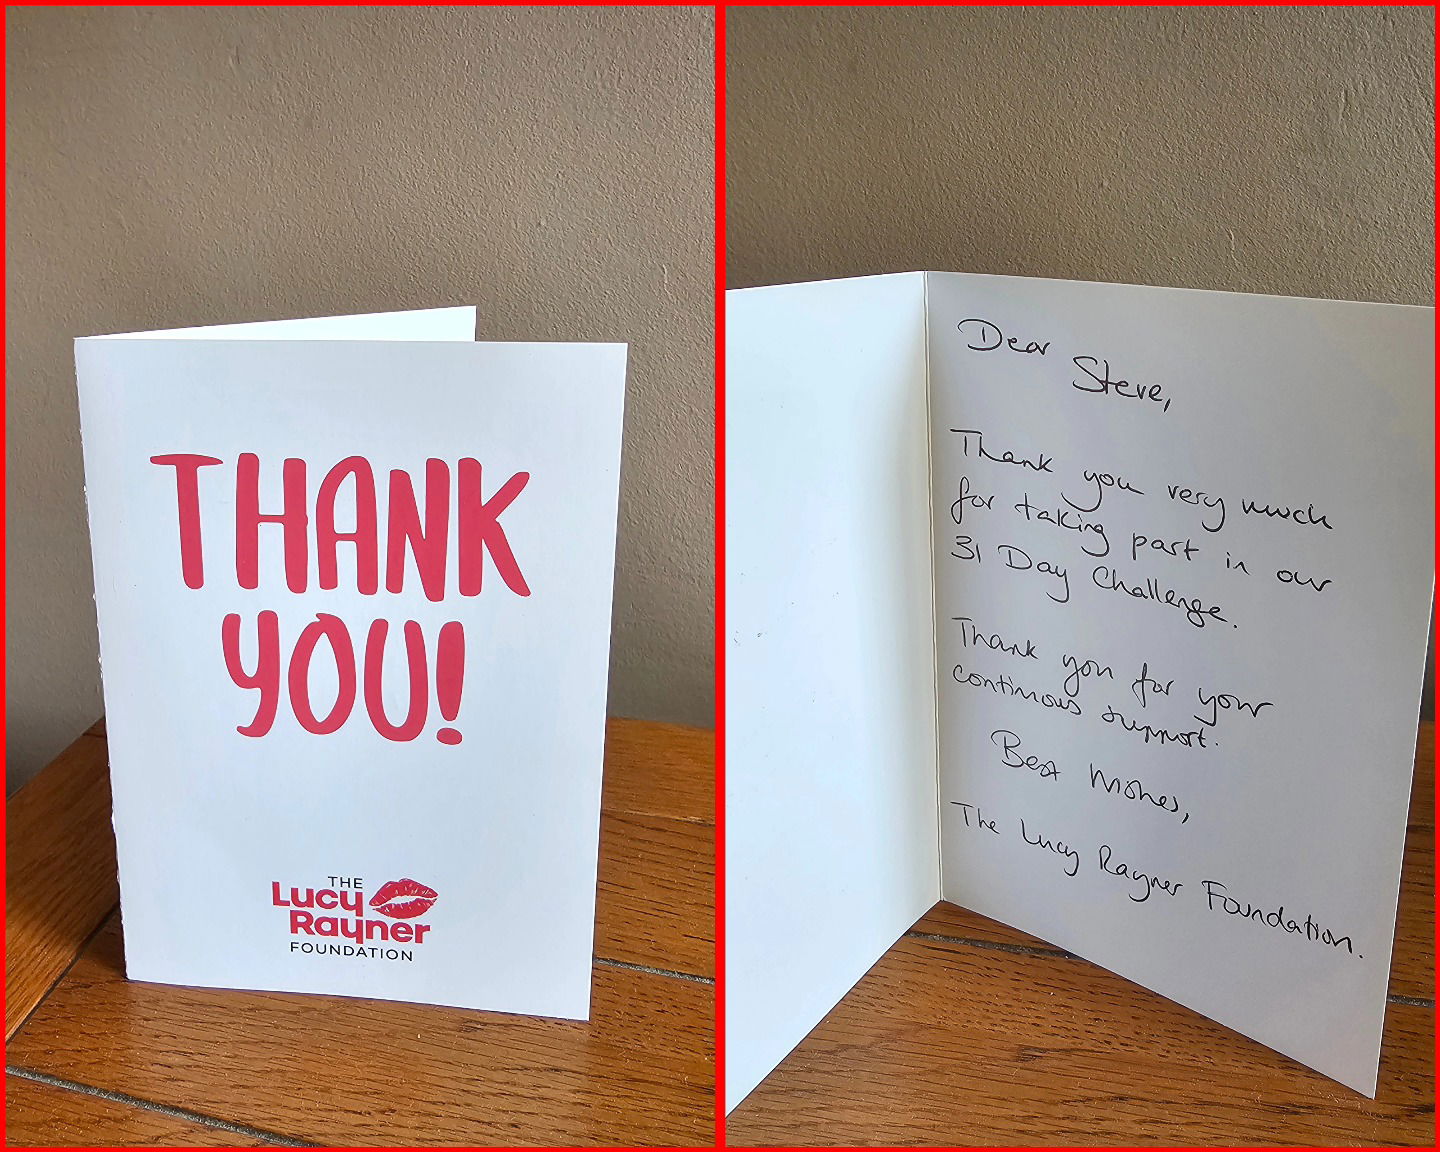 THANK
YOU!
THE
Lucy
Rayner
FOUNDATION
Dear Steve,
Thank you very much
for taking part in our
31 Day Challenge.
Thank you for your
continuous support.
Best Wishes,
The Lucy Rayner Foundation.